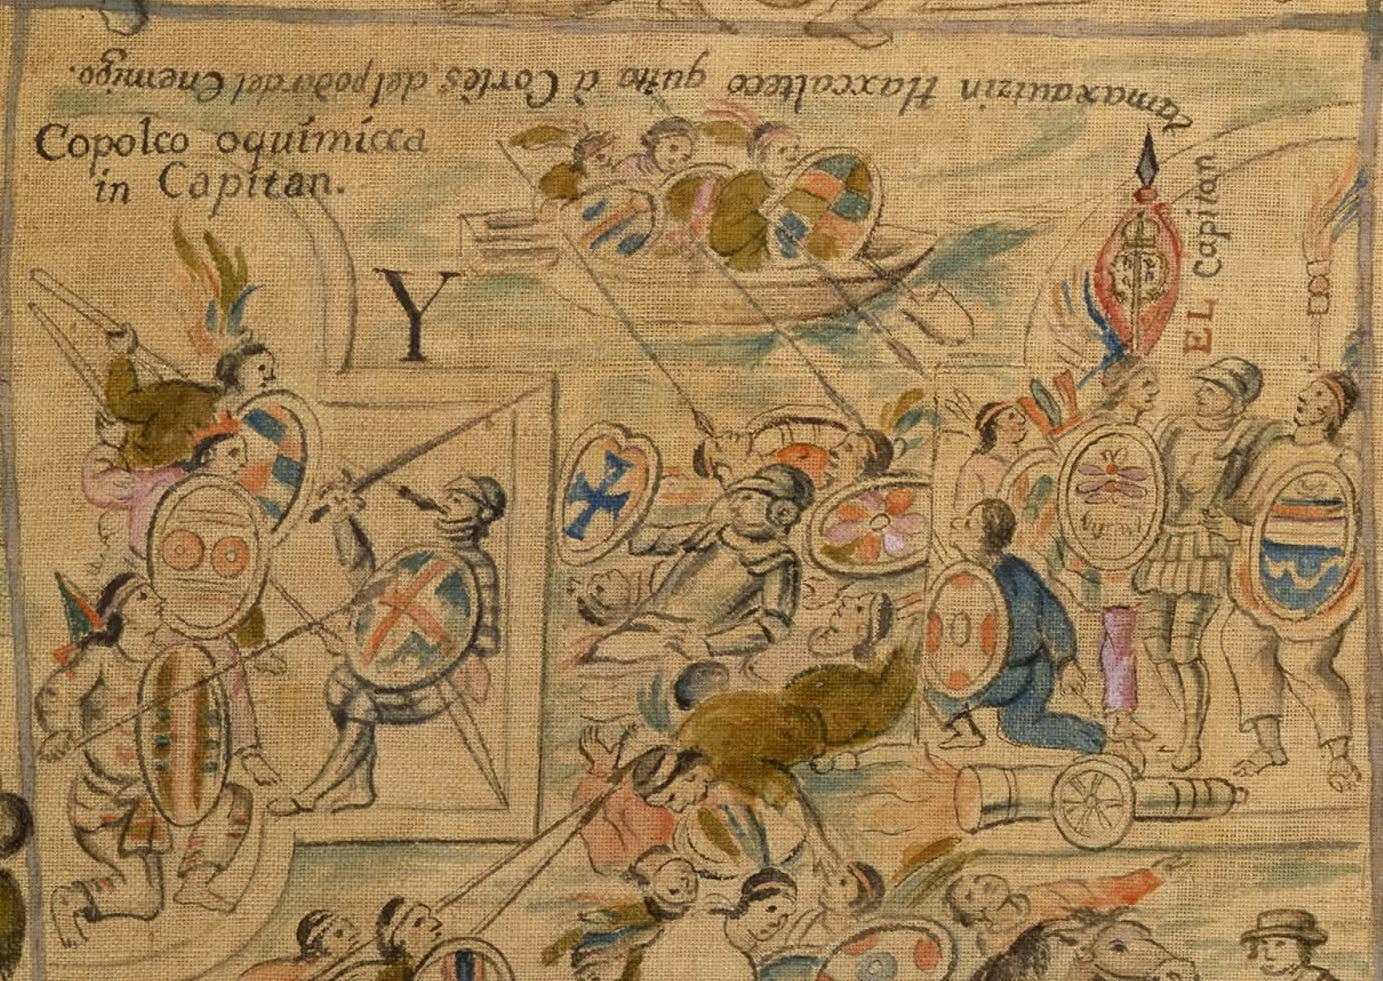 tamaxautzin tlaxcalteco quito à Cortès del poder del Enemigo.
Copolco oquimicca
in Capitan.
Y
EL Capitan